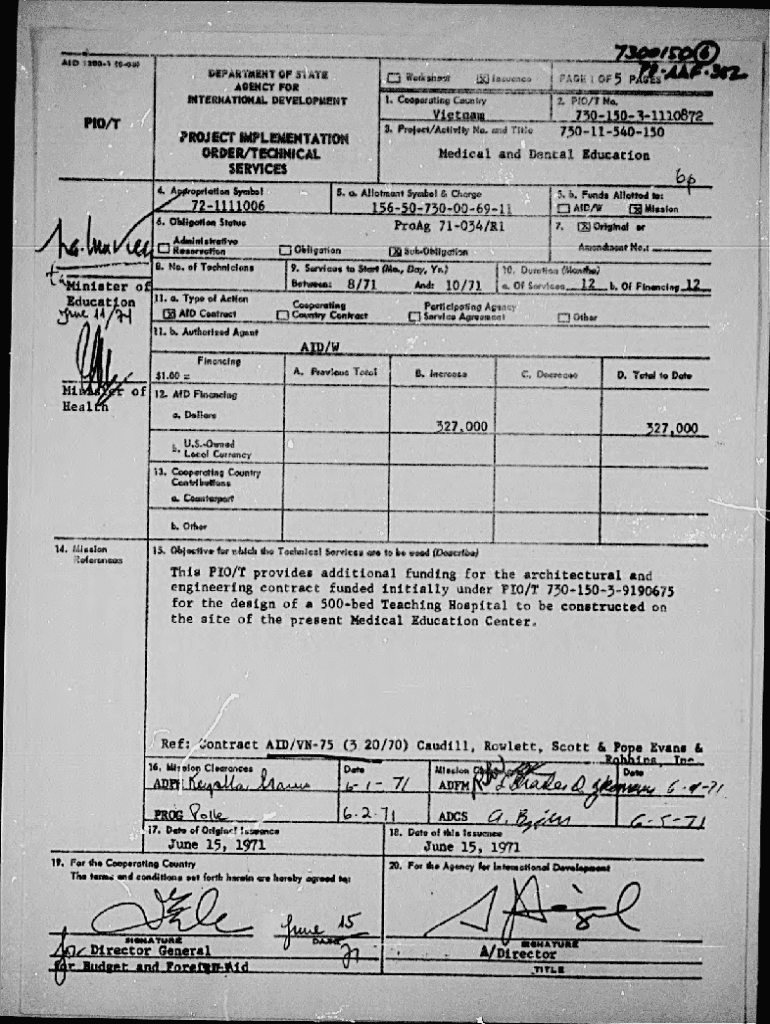 7300150 (6)
AID 1380-1
DEPARTMENT OF STATE
AGENCY FOR
INTERNATIONAL DEVELOPMENT
PIO/T
PROJECT IMPLEMENTATION
ORDER/TECHNICAL
SERVICES
Worksheet Issuance PAGE 1 OF 5 PAGES
1. Cooperating Country
Vietnam
2. PIO/T No.
730-150-3-1110872
3. Project/Activity No. and Title 730-11-540-150
Medical and Dental Education
6p
4. Appropriation Symbol
72-1111006
5. a. Allotment Symbol & Charge
156-50-730-00-69-11
5. b. Funds Allotted to:
AID/W Mission
6. Obligation Status
ProAg 71-034/R1
Administrative
Reservation Obligation Sub-Obligation
7. Original or
Amendment No.:
Minister of
Education
June 11/71
8. No. of Technicians
9. Services to Start (Mo., Day, Yr.)
Between: 8/71 And: 10/71
10. Duration (Months)
a. Of Services 12 b. Of Financing 12
11. a. Type of Action
AID Contract
Cooperating
Country Contract
Participating Agency
Service Agreement
Other
11. b. Authorized Agent
AID/W
Minister of
Health
Financing
$1.00 =
A. Previous Total B. Increase C. Decrease D. Total to Date
12. AID Financing
a. Dollars 327,000 327,000
b. U.S.-Owned
Local Currency
13. Cooperating Country
Contributions
a. Counterpart
b. Other
14. Mission
References
15. Objective for which the Technical Services are to be used (Describe)
This PIO/T provides additional funding for the architectural and
engineering contract funded initially under PIO/T 730-150-3-9190675
for the design of a 500-bed Teaching Hospital to be constructed on
the site of the present Medical Education Center.
Ref: Contract AID/VN-75 (3 20/70) Caudill, Rowlett, Scott & Pope Evans &
Robbins, Inc.
16. Mission Clearances Date Mission Clearances Date
ADFM 6-1-71 ADFM
PROG Polle 6-2-71 ADCS 6-5-71
17. Date of Original Issuance
June 15, 1971
18. Date of this Issuance
June 15, 1971
19. For the Cooperating Country
The terms and conditions set forth herein are hereby agreed to:
20. For the Agency for International Development
June 15
71
SIGNATURE DATE
for Director General
for Budget and Foreign Aid
SIGNATURE
A/Director
TITLE